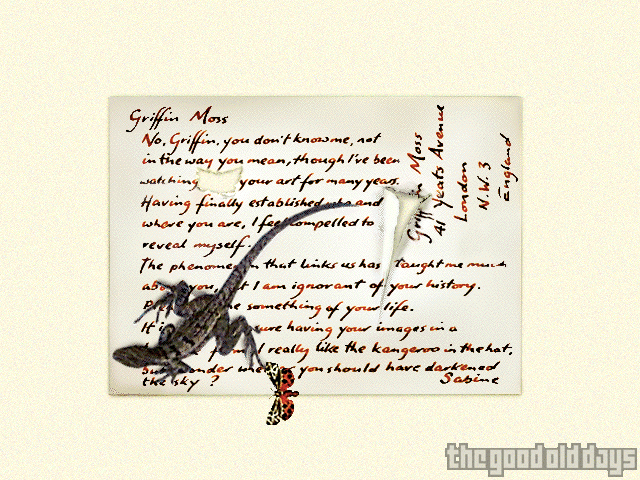 Griffin Moss
No, Griffin, you don't know me, not
in the way you mean, though I've been
watching your art for many years.
Having finally established who and
where you are, I feel compelled to
reveal myself.
The phenomenon that links us has taught me much
about you, but I am ignorant of your history.
me something of your life.
It is sure having your images in a
form. I really like the kangaroo in the hat.
But wonder why you should have darkened
the sky?
Sabine
Griffin Moss
41 Yeats Avenue
London
N.W.3
England
the good old days